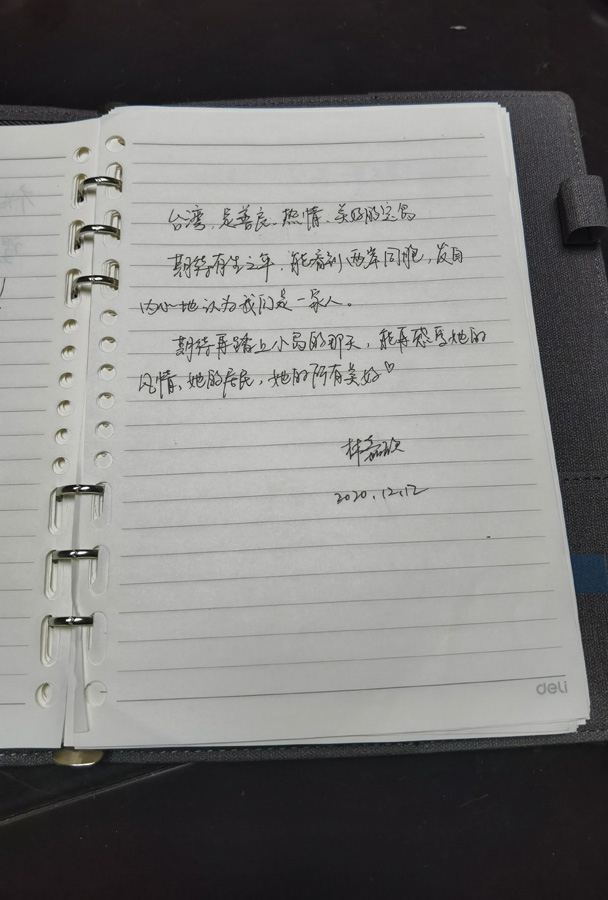 台湾,是善良、热情、美好的宝岛
期待有生之年,能看到两岸同胞,发自
内心地认为我们是一家人。
期待再踏上小岛的那天,能再感受她的
风情,她的居民,她的所有美好♡
林
2020.12.12
deli